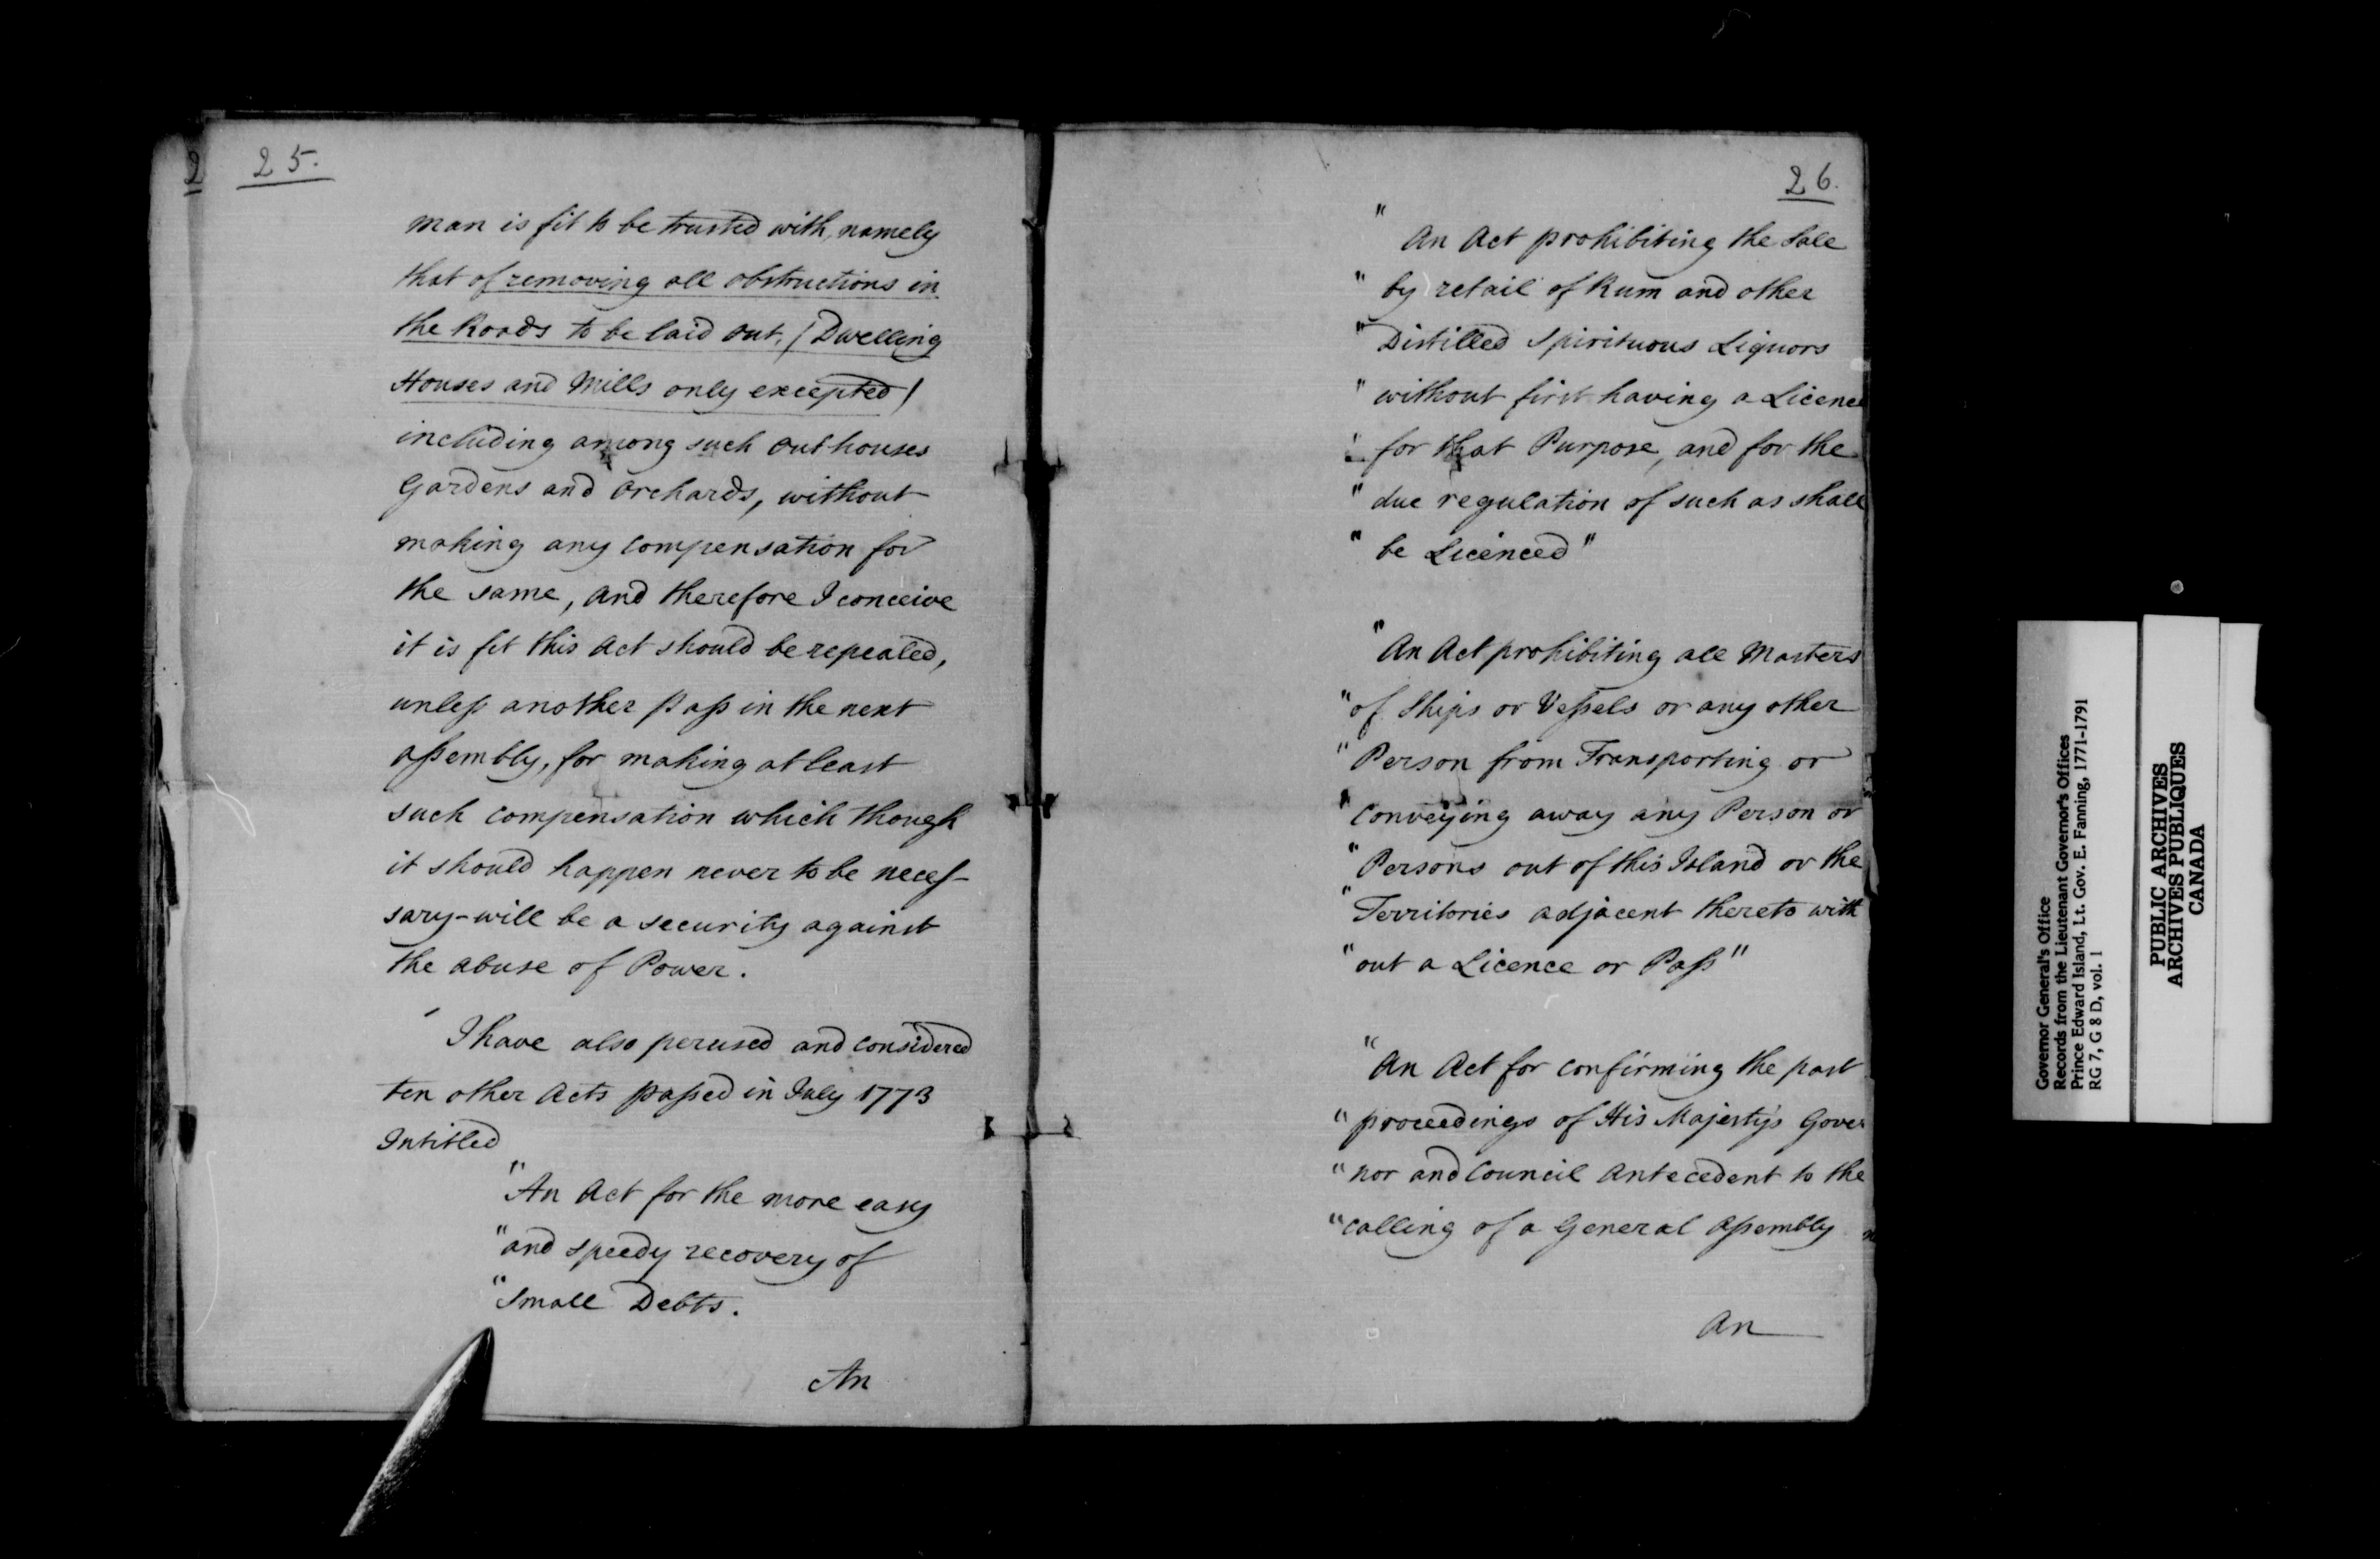 25.
man is fit to be trusted with, namely
that of removing all obstructions in
the Roads to be laid out, (Dwelling
Houses and Mills only excepted)
including among such outhouses
Gardens and Orchards, without
making any compensation for
the same, and therefore I conceive
it is fit this Act should be repealed,
unless another pass in the next
assembly, for making at least
such compensation which though
it should happen never to be neces-
sary - will be a security against
the abuse of Power.
I have also perused and considered
ten other Acts passed in July 1773
Intitled
"An Act for the more easy
"and speedy recovery of
"Small Debts.
An
26.
"An Act prohibiting the Sale
"by retail of Rum and other
"Distilled Spirituous Liquors
"without first having a Licence
"for that Purpose, and for the
"due regulation of such as shall
"be Licenced"
"An Act prohibiting all Masters
"of Ships or Vessels or any other
"Person from Transporting or
"conveying away any Person or
"Persons out of this Island or the
"Territories adjacent thereto with
"out a Licence or Pass"
"An Act for confirming the past
"proceedings of His Majesty's Gover
"nor and Council Antecedent to the
"calling of a General Assembly
An
Governor General's Office
Records from the Lieutenant Governor's Offices
Prince Edward Island, Lt. Gov. E. Fanning, 1771-1791
RG 7, G 8 D, vol. 1
PUBLIC ARCHIVES
ARCHIVES PUBLIQUES
CANADA